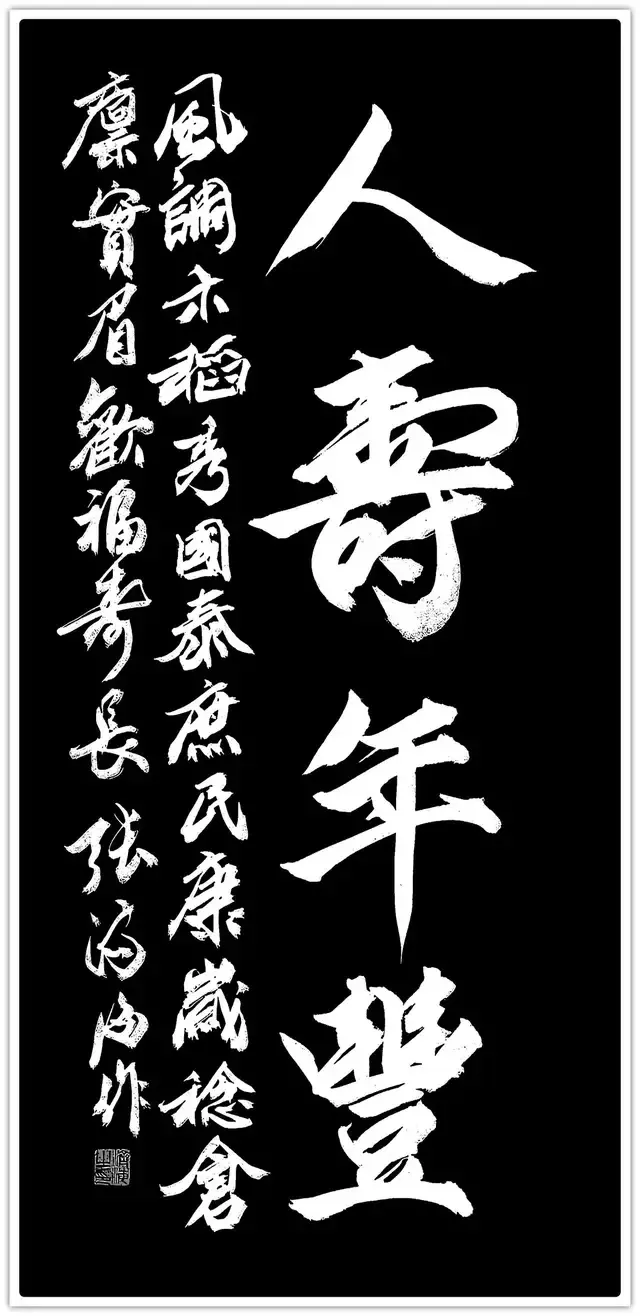 人壽年豐
風調禾稻秀國泰庶民康歲稔倉
廩實眉歡福壽長 張 作